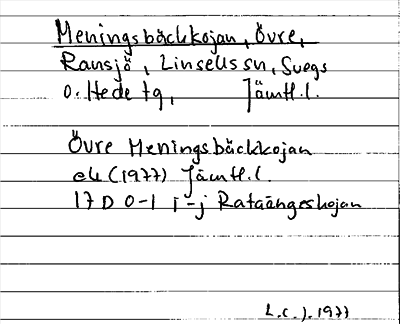 Meningsbäckkojan, Övre,
Ransjö, Linsells sn, Svegs
o. Hede tg, Jämtl.l.
Övre Meningsbäckkojan
ek (1977) Jämtl.l.
17 D 0-1 i-j Rataängeskojan
L.C.J. 1977